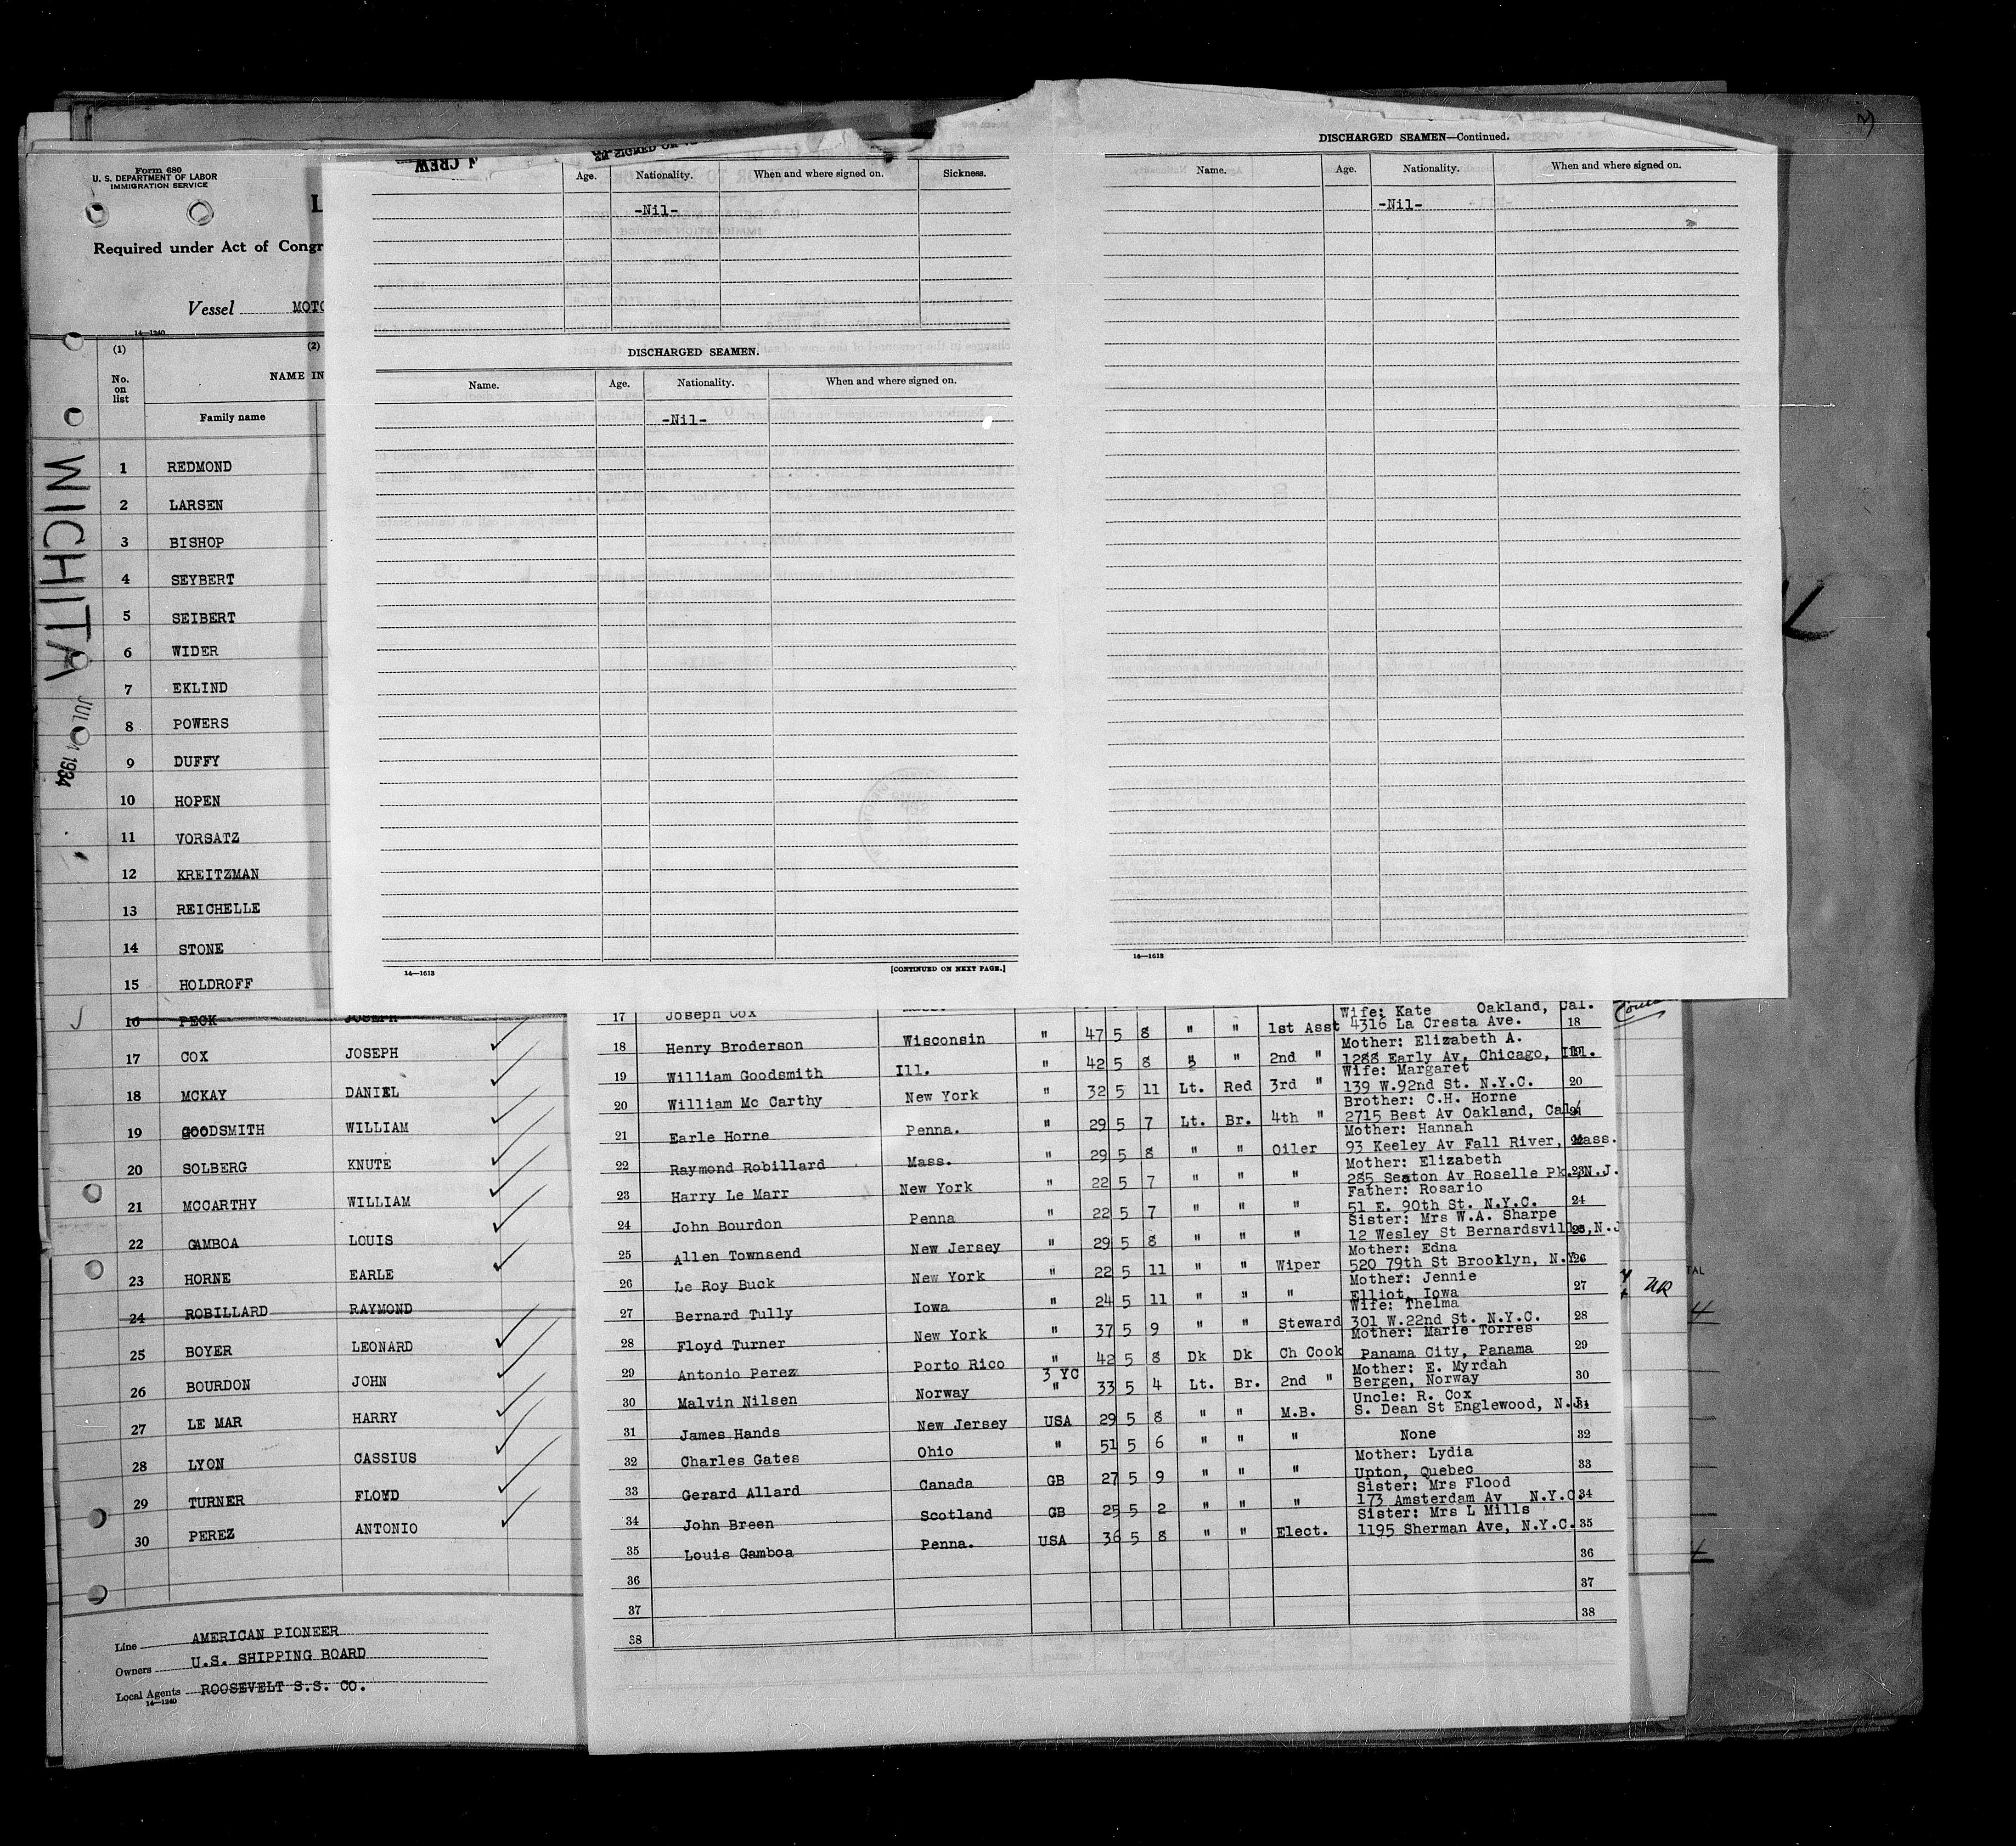 Form 680
U. S. DEPARTMENT OF LABOR
IMMIGRATION SERVICE
L
Required under Act of Congr
Vessel MOTO
14—1240
(1) (2)
No. on list NAME IN
Family name
WICHITA
JUL 1934
1 REDMOND
2 LARSEN
3 BISHOP
4 SEYBERT
5 SEIBERT
6 WIDER
7 EKLIND
8 POWERS
9 DUFFY
10 HOPEN
11 VORSATZ
12 KREITZMAN
13 REICHELLE
14 STONE
15 HOLDROFF
16 PECK JOSEPH
17 COX JOSEPH
18 MCKAY DANIEL
19 GOODSMITH WILLIAM
20 SOLBERG KNUTE
21 MCCARTHY WILLIAM
22 GAMBOA LOUIS
23 HORNE EARLE
24 ROBILLARD RAYMOND
25 BOYER LEONARD
26 BOURDON JOHN
27 LE MAR HARRY
28 LYON CASSIUS
29 TURNER FLOYD
30 PEREZ ANTONIO
Line AMERICAN PIONEER
Owners U.S. SHIPPING BOARD
Local Agents ROOSEVELT S.S. CO.
14—1240
CREW
Age. Nationality. When and where signed on. Sickness.
-Nil-
DISCHARGED SEAMEN.
Name. Age. Nationality. When and where signed on.
-Nil-
14—1613 [CONTINUED ON NEXT PAGE.]
DISCHARGED SEAMEN—Continued.
Name. Age. Nationality. When and where signed on.
-Nil-
14—1613
17 Joseph Cox
Wife: Kate Oakland, Cal.
18 Henry Broderson Wisconsin " 47 5 8 " " 1st Asst 4316 La Cresta Ave. 18
Mother: Elizabeth A.
19 William Goodsmith Ill. " 42 5 8 " " 2nd " 1288 Early Av, Chicago, Ill.
Wife: Margaret
20 William Mc Carthy New York " 32 5 11 Lt. Red 3rd " 139 W.92nd St. N.Y.C. 20
Brother: C.H. Horne
21 Earle Horne Penna. " 29 5 7 Lt. Br. 4th " 2715 Best Av Oakland, Cal 21
Mother: Hannah
22 Raymond Robillard Mass. " 29 5 8 " " Oiler 93 Keeley Av Fall River, Mass. 22
Mother: Elizabeth
23 Harry Le Marr New York " 22 5 7 " " " 285 Seaton Av Roselle Pk., N.J. 23
Father: Rosario
24 John Bourdon Penna " 22 5 7 " " " 51 E. 90th St. N.Y.C. 24
Sister: Mrs W.A. Sharpe
25 Allen Townsend New Jersey " 29 5 8 " " " 12 Wesley St Bernardsville, N.J 25
Mother: Edna
26 Le Roy Buck New York " 22 5 11 " " Wiper 520 79th St Brooklyn, N.Y. 26
Mother: Jennie
27 Bernard Tully Iowa " 24 5 11 " " " Elliot, Iowa 27
Wife: Thelma
28 Floyd Turner New York " 37 5 9 " " Steward 301 W.22nd St. N.Y.C. 28
Mother: Marie Torres
29 Antonio Perez Porto Rico " 42 5 8 Dk Dk Ch Cook Panama City, Panama 29
Mother: E. Myrdah
30 Malvin Nilsen Norway 3 YC " 33 5 4 Lt. Br. 2nd " Bergen, Norway 30
Uncle: R. Cox
31 James Hands New Jersey USA 29 5 8 " " M.B. S. Dean St Englewood, N.J. 31
32 Charles Gates Ohio " 51 5 6 " " " None 32
Mother: Lydia
33 Gerard Allard Canada GB 27 5 9 " " " Upton, Quebec 33
Sister: Mrs Flood
34 John Breen Scotland GB 25 5 2 " " " 173 Amsterdam Av N.Y.C. 34
Sister: Mrs L Mills
35 Louis Gamboa Penna. USA 36 5 8 " " Elect. 1195 Sherman Ave, N.Y.C. 35
36 36
37 37
38 38
TAL